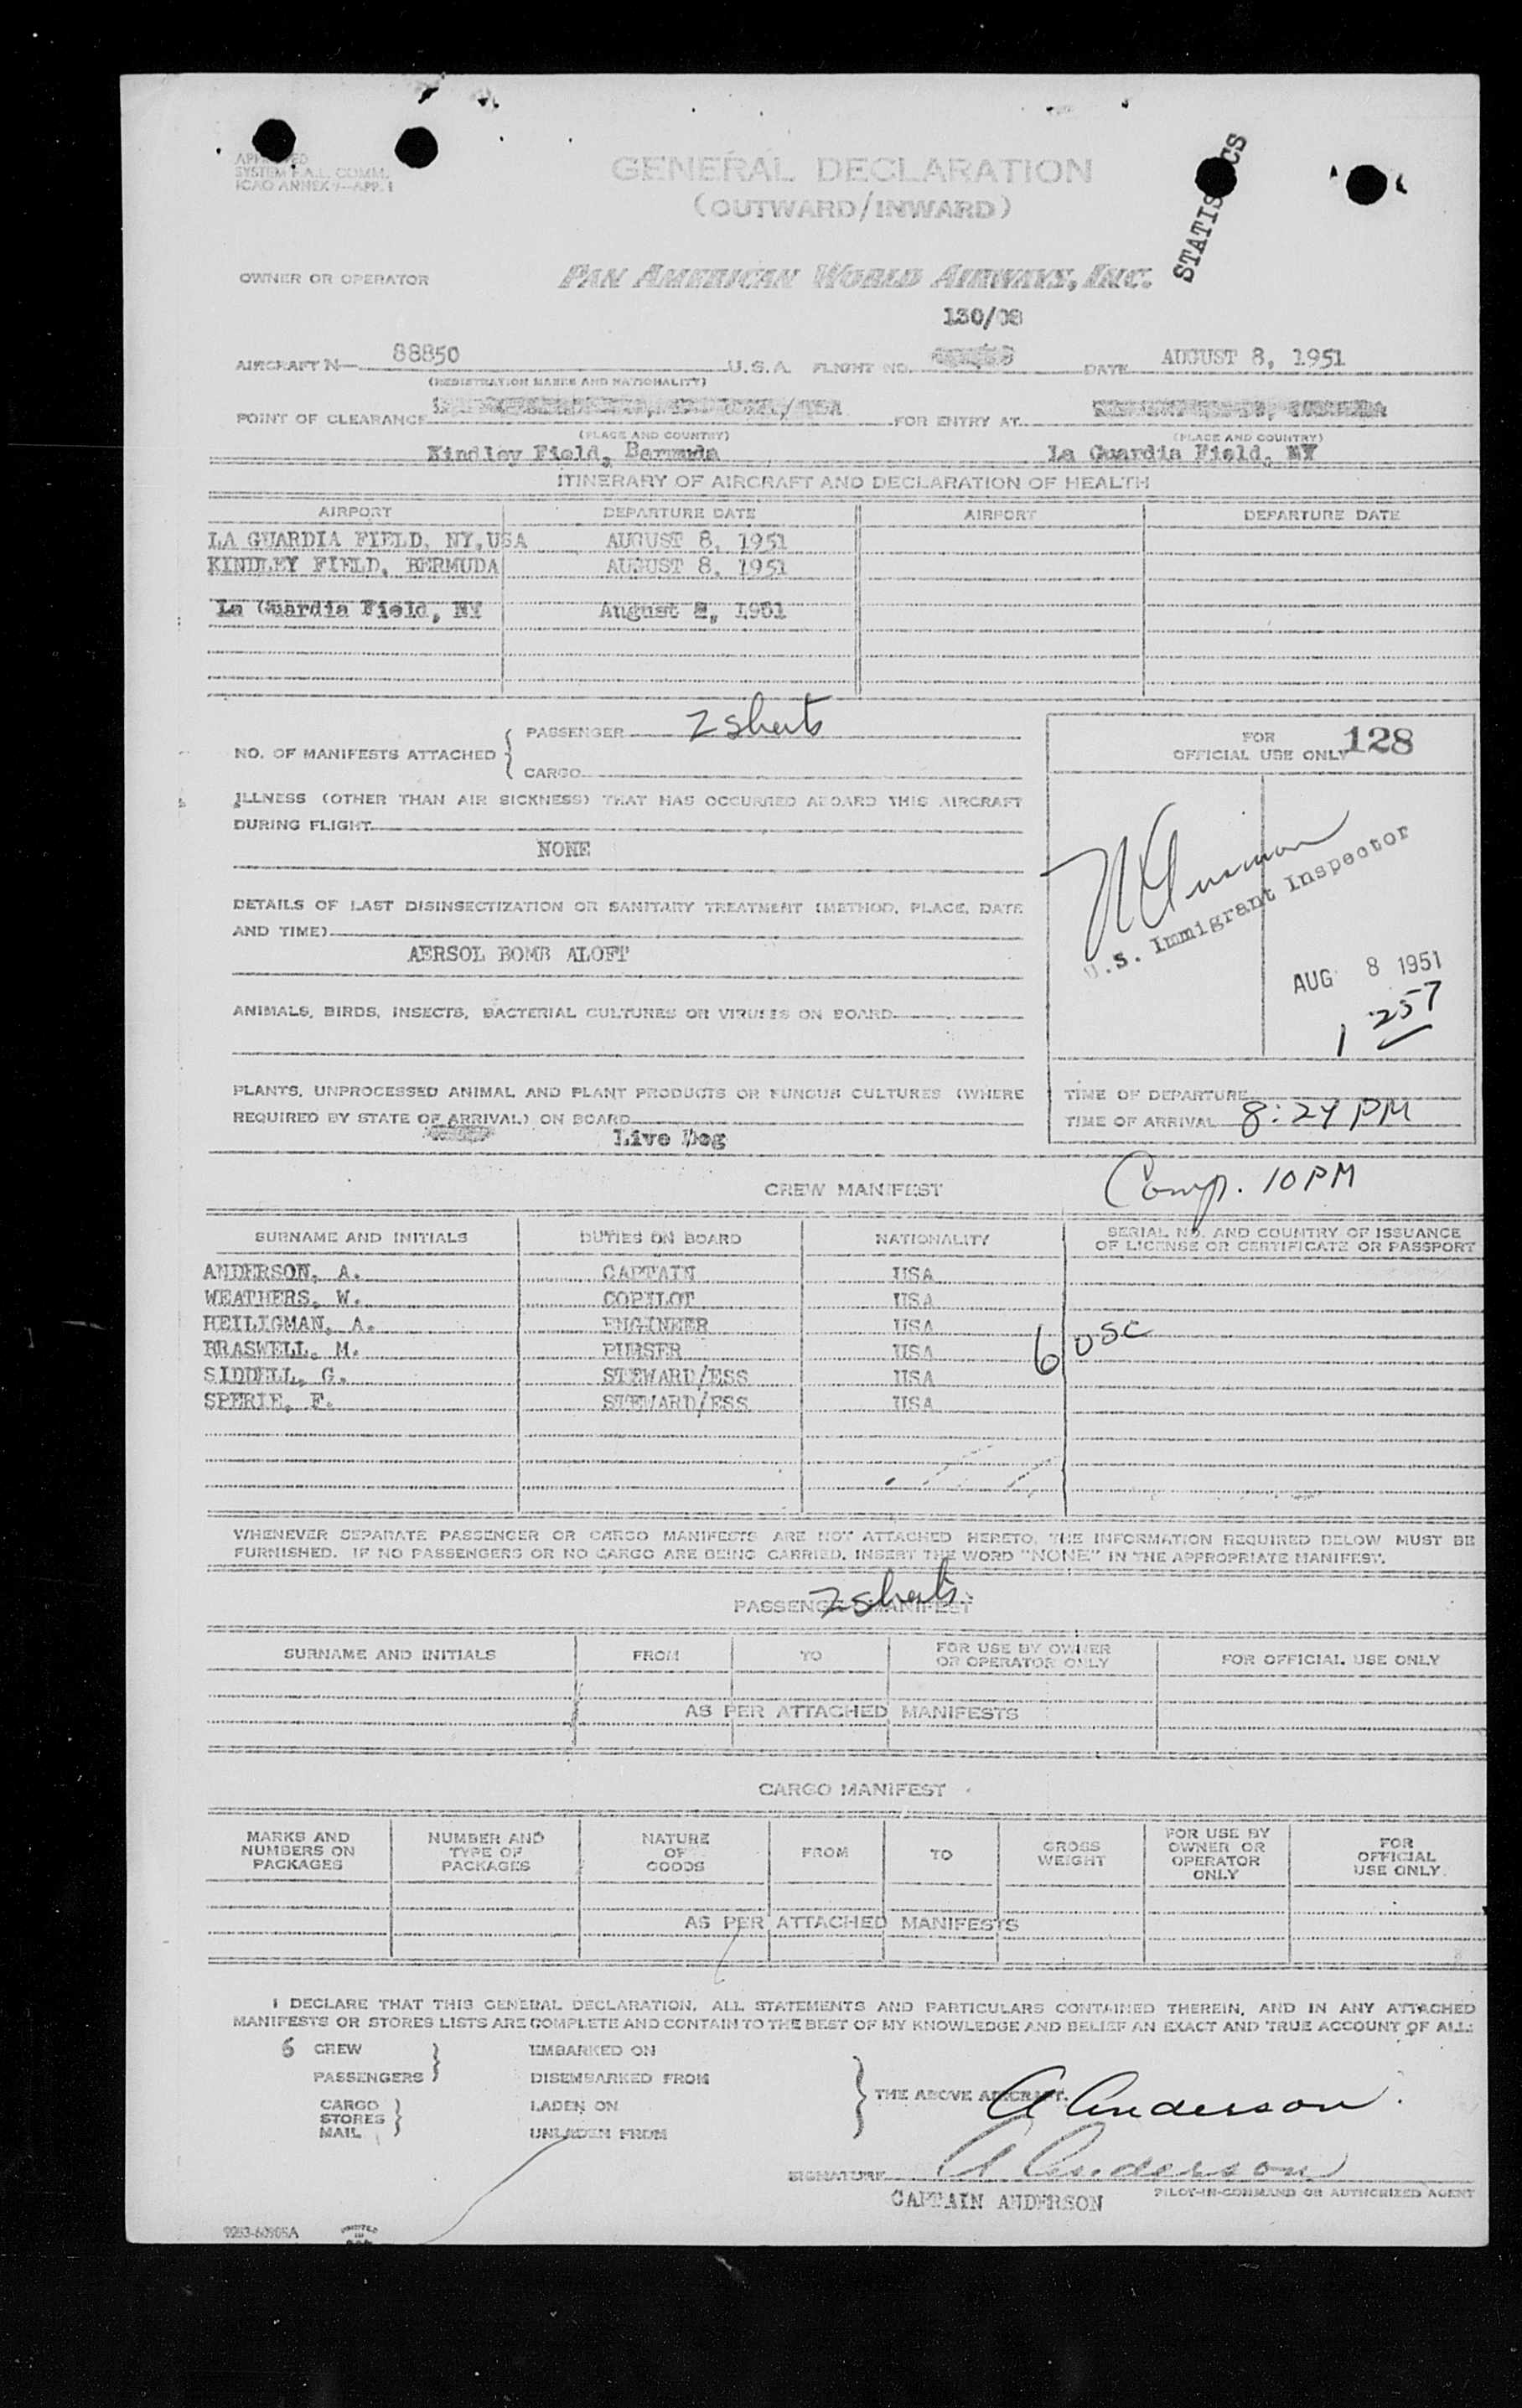 SYSTEM F.A.L. COMM.
ICAO ANNEX 9—APP. 1
STATIS CS
GENERAL DECLARATION
(OUTWARD/INWARD)
OWNER OR OPERATOR PAN AMERICAN WORLD AIRWAYS, INC.
130/08
AIRCRAFT N— 88850 U.S.A. FLIGHT NO. DATE AUGUST 8, 1951
(REGISTRATION MARKS AND NATIONALITY)
POINT OF CLEARANCE FOR ENTRY AT
(PLACE AND COUNTRY) (PLACE AND COUNTRY)
Kindley Field, Bermuda La Guardia Field, NY
ITINERARY OF AIRCRAFT AND DECLARATION OF HEALTH
AIRPORT DEPARTURE DATE AIRPORT DEPARTURE DATE
LA GUARDIA FIELD, NY, USA AUGUST 8, 1951
KINDLEY FIELD, BERMUDA AUGUST 8, 1951
La Guardia Field, NY August 8, 1951
NO. OF MANIFESTS ATTACHED PASSENGER 2 sheets
CARGO
FOR OFFICIAL USE ONLY 128
ILLNESS (OTHER THAN AIR SICKNESS) THAT HAS OCCURRED ABOARD THIS AIRCRAFT
DURING FLIGHT
NONE
DETAILS OF LAST DISINSECTIZATION OR SANITARY TREATMENT (METHOD, PLACE, DATE
AND TIME)
AERSOL BOMB ALOFT
U.S. Immigrant Inspector
AUG 8 1951
1 257
ANIMALS, BIRDS, INSECTS, BACTERIAL CULTURES OR VIRUSES ON BOARD
PLANTS, UNPROCESSED ANIMAL AND PLANT PRODUCTS OR FUNGUS CULTURES (WHERE
REQUIRED BY STATE OF ARRIVAL) ON BOARD
Live Dog
TIME OF DEPARTURE
TIME OF ARRIVAL 8:24 PM
Comp. 10 PM
CREW MANIFEST
SURNAME AND INITIALS DUTIES ON BOARD NATIONALITY SERIAL NO. AND COUNTRY OF ISSUANCE
OF LICENSE OR CERTIFICATE OR PASSPORT
ANDERSON, A. CAPTAIN USA
WEATHERS, W. COPILOT USA
HEILIGMAN, A. ENGINEER USA
BRASWELL, M. PURSER USA 6 USC
SIDDELL, G. STEWARD/ESS USA
SPERIE, F. STEWARD/ESS USA
WHENEVER SEPARATE PASSENGER OR CARGO MANIFESTS ARE NOT ATTACHED HERETO, THE INFORMATION REQUIRED BELOW MUST BE
FURNISHED. IF NO PASSENGERS OR NO CARGO ARE BEING CARRIED, INSERT THE WORD "NONE" IN THE APPROPRIATE MANIFEST.
2 sheets
PASSENGER MANIFEST
SURNAME AND INITIALS FROM TO FOR USE BY OWNER OR OPERATOR ONLY FOR OFFICIAL USE ONLY
AS PER ATTACHED MANIFESTS
CARGO MANIFEST
MARKS AND NUMBERS ON PACKAGES NUMBER AND TYPE OF PACKAGES NATURE OF GOODS FROM TO GROSS WEIGHT FOR USE BY OWNER OR OPERATOR ONLY FOR OFFICIAL USE ONLY
AS PER ATTACHED MANIFESTS
I DECLARE THAT THIS GENERAL DECLARATION, ALL STATEMENTS AND PARTICULARS CONTAINED THEREIN, AND IN ANY ATTACHED
MANIFESTS OR STORES LISTS ARE COMPLETE AND CONTAIN TO THE BEST OF MY KNOWLEDGE AND BELIEF AN EXACT AND TRUE ACCOUNT OF ALL:
6 CREW EMBARKED ON
PASSENGERS DISEMBARKED FROM
THE ABOVE AIRCRAFT. A Anderson
CARGO LADEN ON
STORES
MAIL UNLADEN FROM
SIGNATURE A Anderson
CAPTAIN ANDERSON PILOT-IN-COMMAND OR AUTHORIZED AGENT